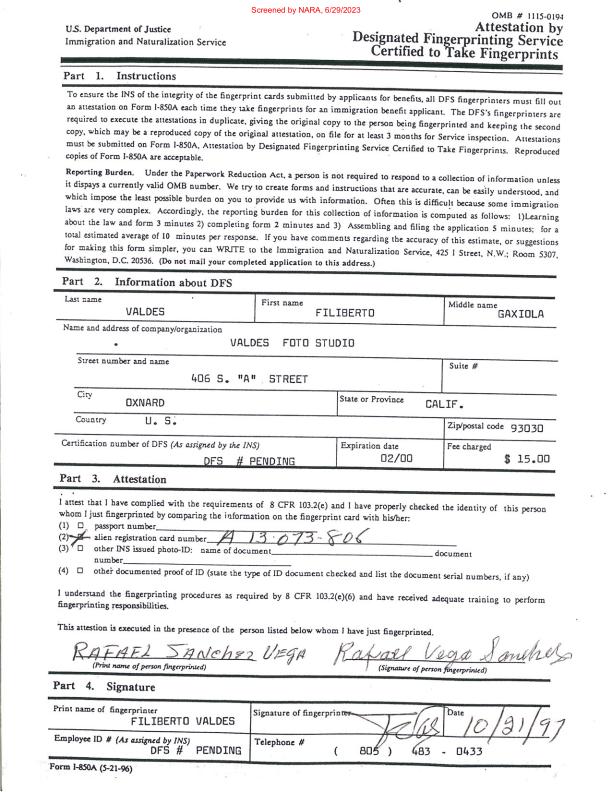 Screened by NARA, 6/29/2023
OMB # 1115-0194
U.S. Department of Justice
Immigration and Naturalization Service
Attestation by
Designated Fingerprinting Service
Certified to Take Fingerprints
Part 1. Instructions
To ensure the INS of the integrity of the fingerprint cards submitted by applicants for benefits, all DFS fingerprinters must fill out
an attestation on Form I-850A each time they take fingerprints for an immigration benefit applicant. The DFS's fingerprinters are
required to execute the attestations in duplicate, giving the original copy to the person being fingerprinted and keeping the second
copy, which may be a reproduced copy of the original attestation, on file for at least 3 months for Service inspection. Attestations
must be submitted on Form I-850A, Attestation by Designated Fingerprinting Service Certified to Take Fingerprints. Reproduced
copies of Form I-850A are acceptable.
Reporting Burden. Under the Paperwork Reduction Act, a person is not required to respond to a collection of information unless
it dispays a currently valid OMB number. We try to create forms and instructions that are accurate, can be easily understood, and
which impose the least possible burden on you to provide us with information. Often this is difficult because some immigration
laws are very complex. Accordingly, the reporting burden for this collection of information is computed as follows: 1)Learning
about the law and form 3 minutes 2) completing form 2 minutes and 3) Assembling and filing the application 5 minutes; for a
total estimated average of 10 minutes per response. If you have comments regarding the accuracy of this estimate, or suggestions
for making this form simpler, you can WRITE to the Immigration and Naturalization Service, 425 I Street, N.W.; Room 5307,
Washington, D.C. 20536. (Do not mail your completed application to this address.)
Part 2. Information about DFS
Last name First name Middle name
VALDES FILIBERTO GAXIOLA
Name and address of company/organization
VALDES FOTO STUDIO
Street number and name Suite #
406 S. "A" STREET
City State or Province
OXNARD CALIF.
Country U. S. Zip/postal code 93030
Certification number of DFS (As assigned by the INS) Expiration date Fee charged
DFS # PENDING 02/00 $ 15.00
Part 3. Attestation
I attest that I have complied with the requirements of 8 CFR 103.2(e) and I have properly checked the identity of this person
whom I just fingerprinted by comparing the information on the fingerprint card with his/her:
(1) passport number
(2) alien registration card number A 13-073-806
(3) other INS issued photo-ID: name of document document
number
(4) other documented proof of ID (state the type of ID document checked and list the document serial numbers, if any)
I understand the fingerprinting procedures as required by 8 CFR 103.2(e)(6) and have received adequate training to perform
fingerprinting responsibilities.
This attestation is executed in the presence of the person listed below whom I have just fingerprinted.
RAFAEL SANCHEZ VEGA Rafael Vega Sanchez
(Print name of person fingerprinted) (Signature of person fingerprinted)
Part 4. Signature
Print name of fingerprinter Signature of fingerprinter Date 10/21/97
FILIBERTO VALDES
Employee ID # (As assigned by INS) Telephone #
DFS # PENDING ( 805 ) 483 - 0433
Form I-850A (5-21-96)